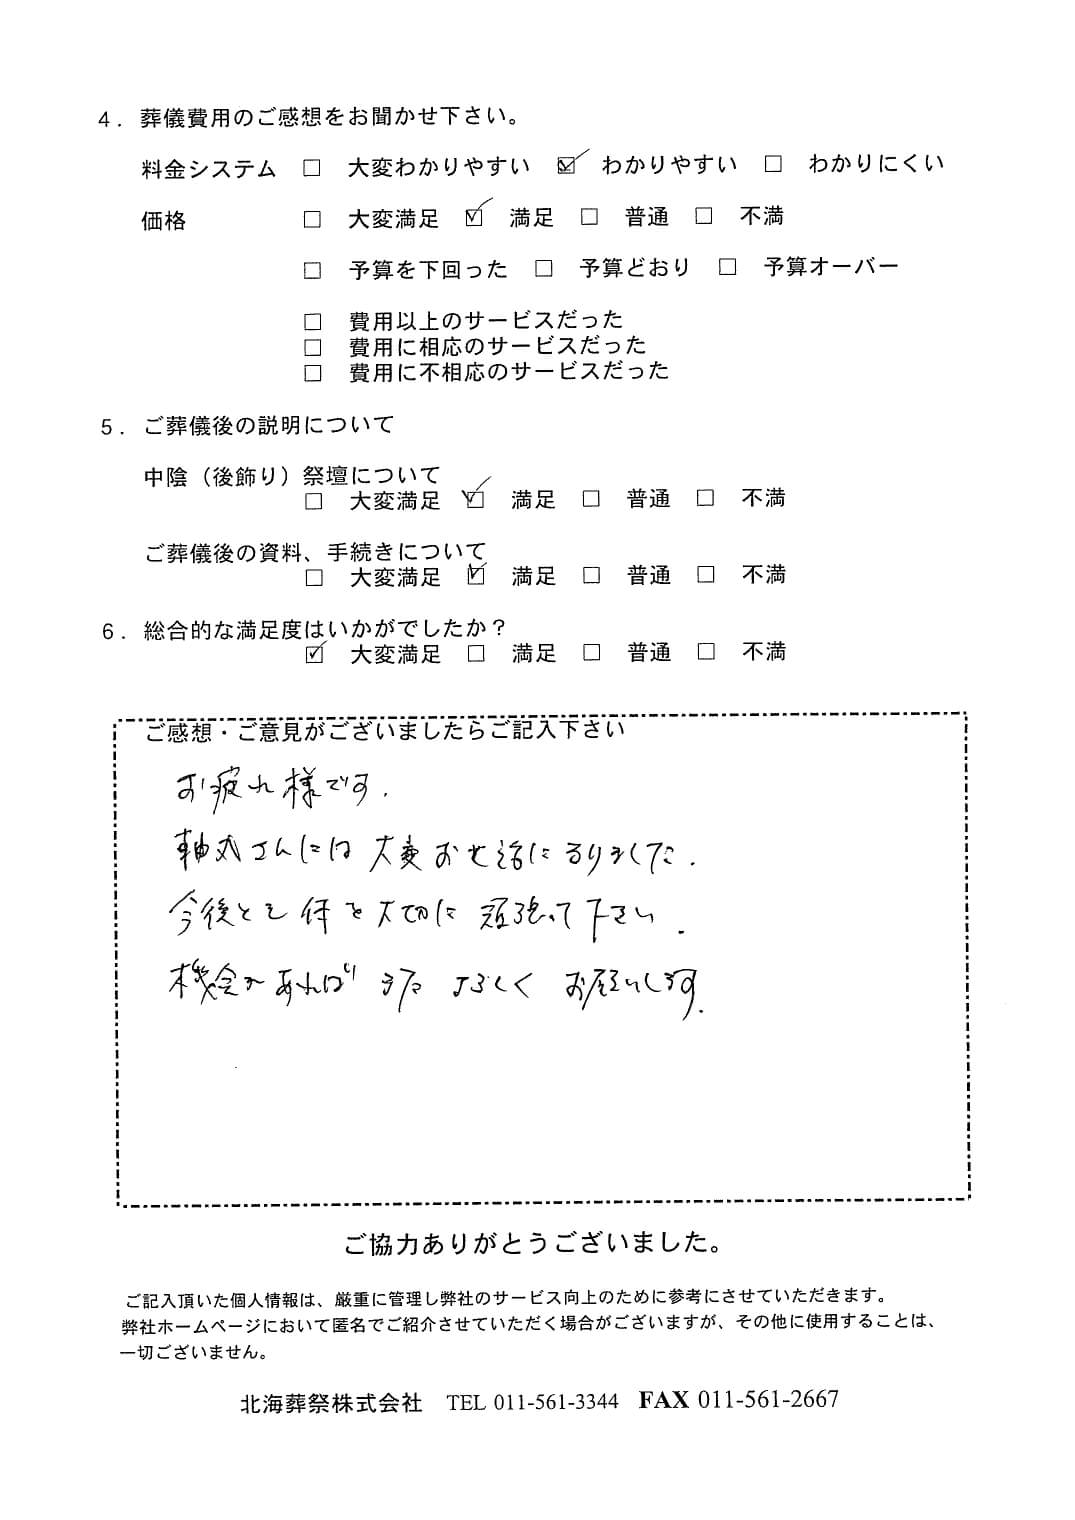 ４．葬儀費用のご感想をお聞かせ下さい。
料金システム □ 大変わかりやすい ☑ わかりやすい □ わかりにくい
価格 □ 大変満足 ☑ 満足 □ 普通 □ 不満
□ 予算を下回った □ 予算どおり □ 予算オーバー
□ 費用以上のサービスだった
□ 費用に相応のサービスだった
□ 費用に不相応のサービスだった
５．ご葬儀後の説明について
中陰（後飾り）祭壇について
□ 大変満足 ☑ 満足 □ 普通 □ 不満
ご葬儀後の資料、手続きについて
□ 大変満足 ☑ 満足 □ 普通 □ 不満
６．総合的な満足度はいかがでしたか？
☑ 大変満足 □ 満足 □ 普通 □ 不満
ご感想・ご意見がございましたらご記入下さい
お疲れ様です.
軸丸さんには 大変お世話になりました.
今後とも 体を大切に 頑張って下さい.
機会があれば また よろしく お願いします.
ご協力ありがとうございました。
ご記入頂いた個人情報は、厳重に管理し弊社のサービス向上のために参考にさせていただきます。
弊社ホームページにおいて匿名でご紹介させていただく場合がございますが、その他に使用することは、
一切ございません。
北海葬祭株式会社 TEL 011-561-3344 FAX 011-561-2667